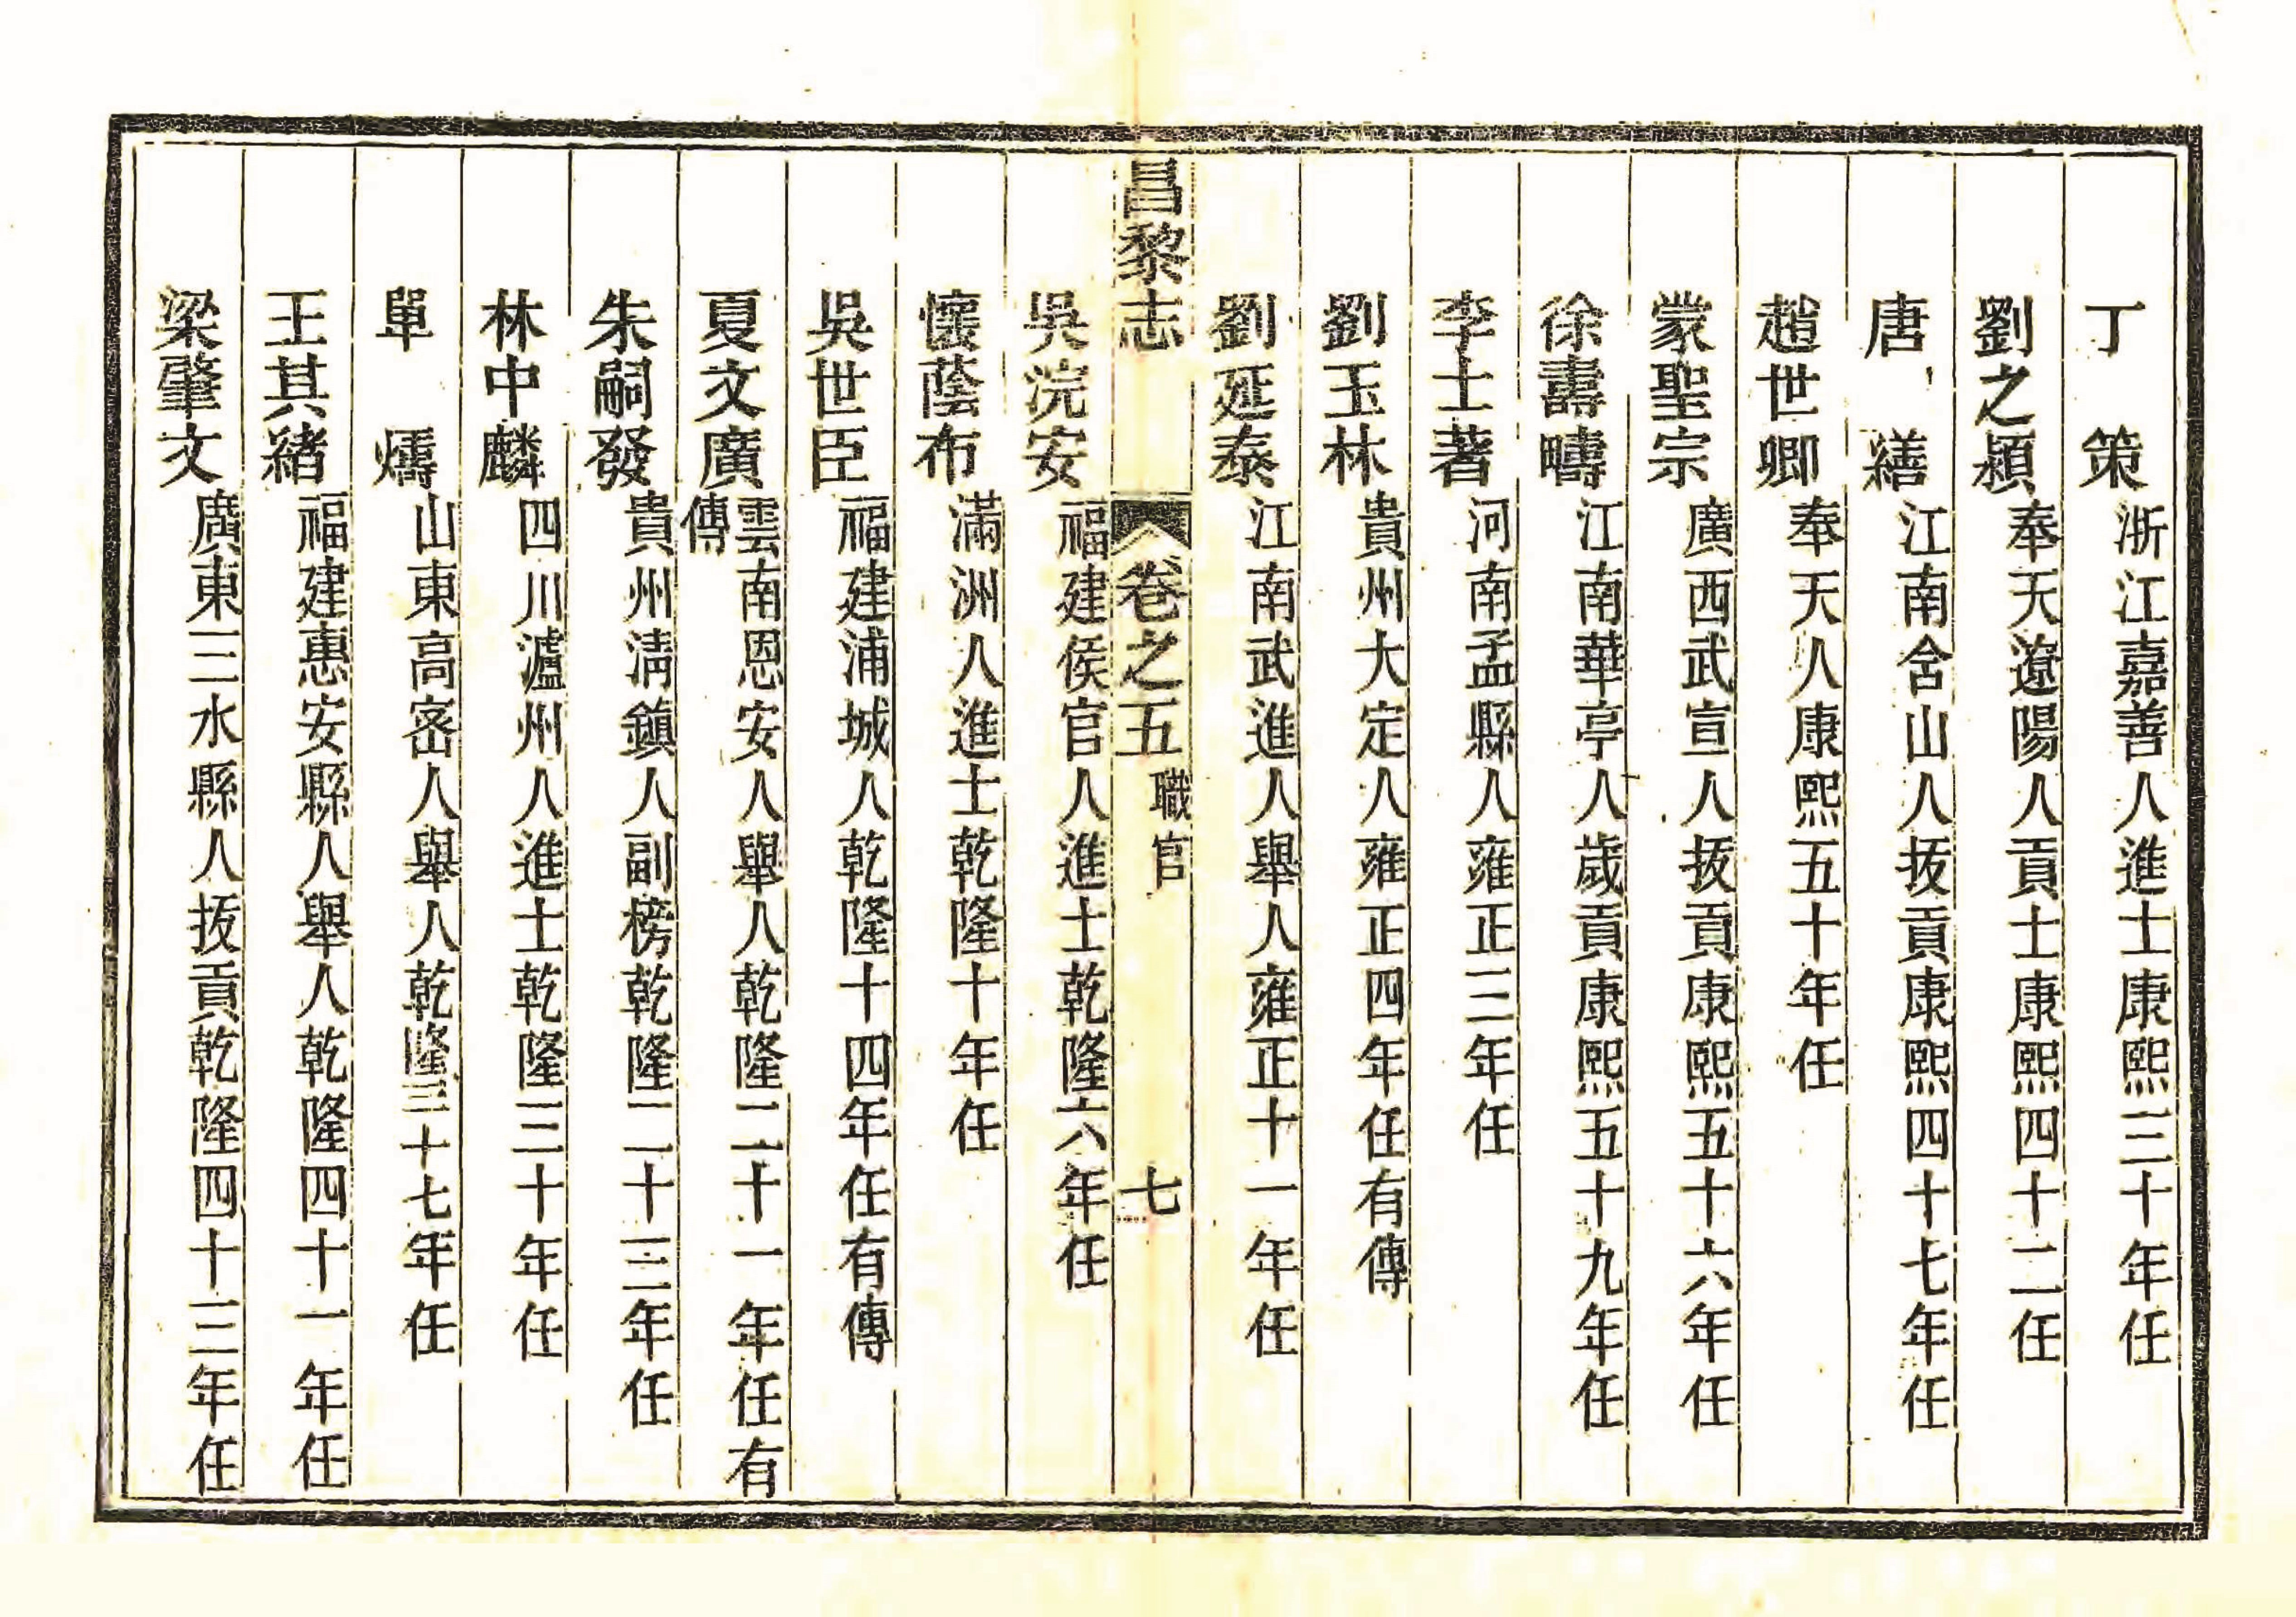 丁　策　浙江嘉善人進士康熙三十年任
劉之潁　奉天遼陽人貢士康熙四十二任
唐　繕　江南含山人拔貢康熙四十七年任
趙世卿　奉天人康熙五十年任
蒙聖宗　廣西武宣人拔貢康熙五十六年任
徐壽疇　江南華亭人歲貢康熙五十九年任
李士著　河南孟縣人雍正三年任
劉玉林　貴州大定人雍正四年任有傳
劉延泰　江南武進人舉人雍正十一年任
昌黎志　卷之五　職官　七
吳浣安　福建侯官人進士乾隆六年任
懷蔭布　滿洲人進士乾隆十年任
吳世臣　福建浦城人乾隆十四年任有傳
夏文廣　雲南恩安人舉人乾隆二十一年任有
傳
朱嗣發　貴州清鎮人副榜乾隆二十三年任
林中麟　四川瀘州人進士乾隆三十年任
單　燽　山東高密人舉人乾隆三十七年任
王其緒　福建惠安縣人舉人乾隆四十一年任
梁肇文　廣東三水縣人拔貢乾隆四十三年任